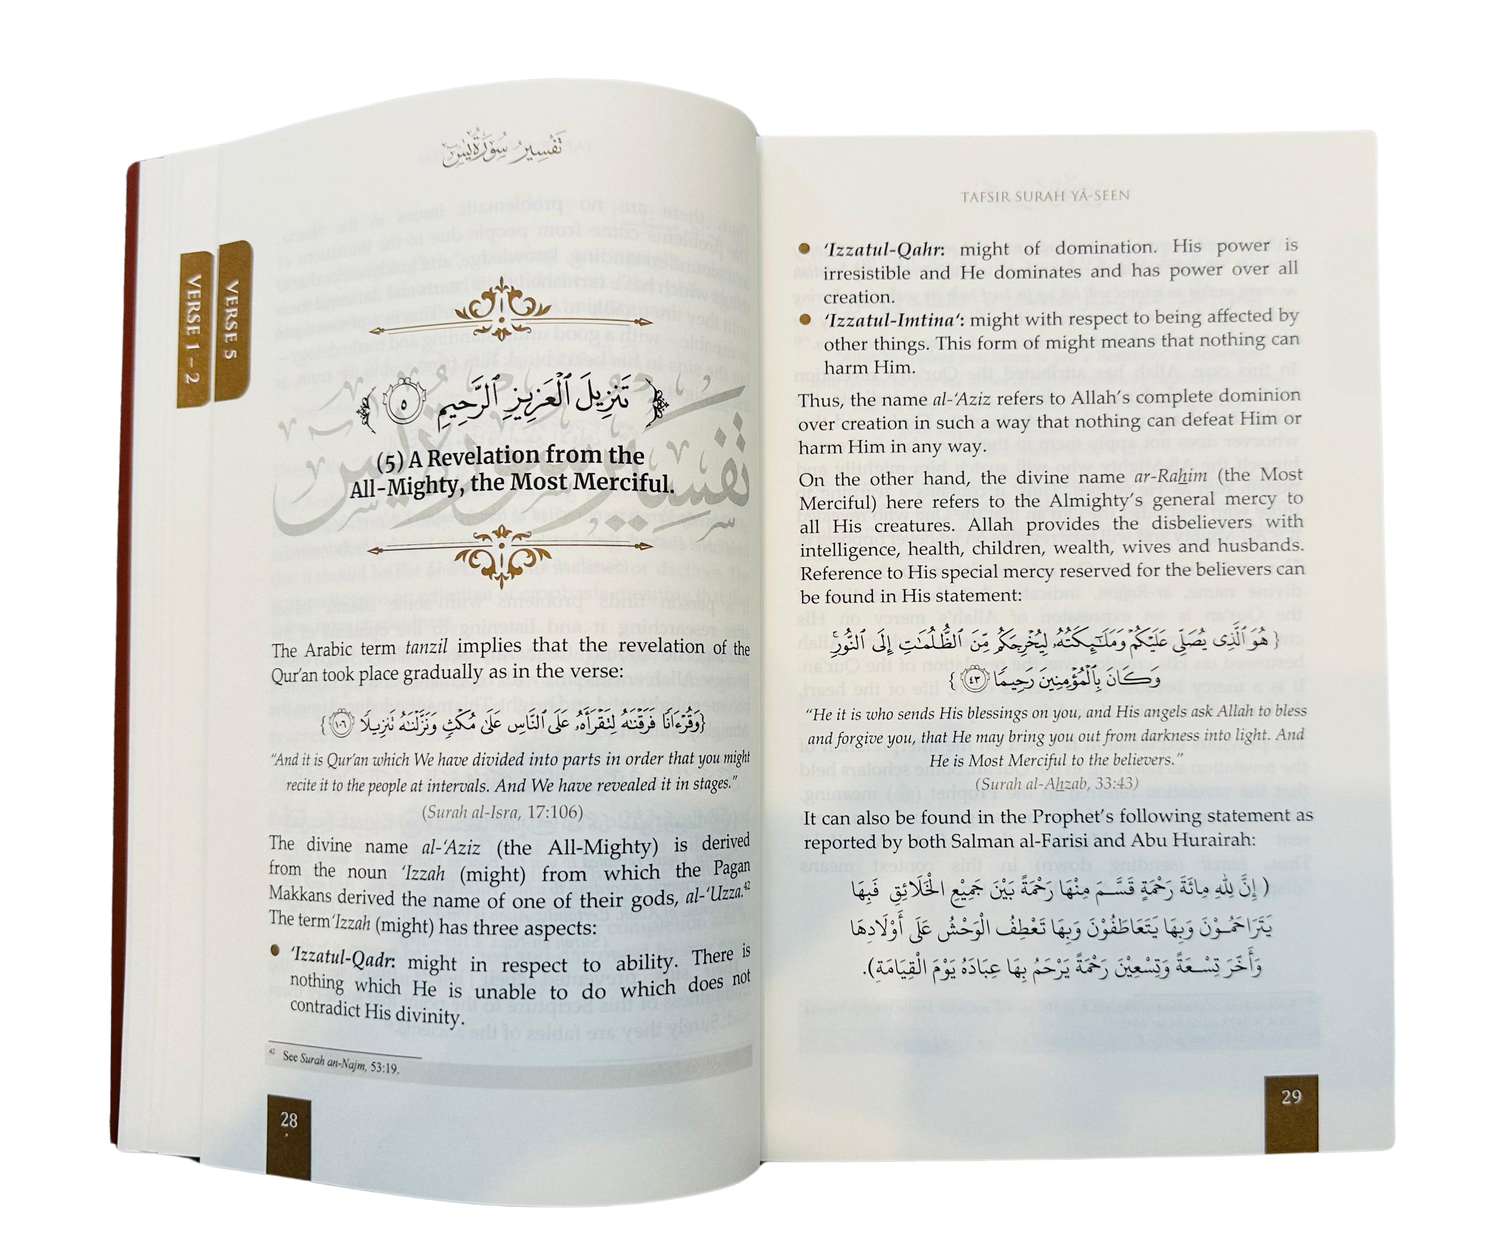 تفسير سورة يس
VERSE 5
VERSE 1 – 2
تَنزِيلَ ٱلْعَزِيزِ ٱلرَّحِيمِ ٥
(5) A Revelation from the
All-Mighty, the Most Merciful.
The Arabic term tanzil implies that the revelation of the
Qur'an took place gradually as in the verse:
{وَقُرْءَانًا فَرَقْنَٰهُ لِتَقْرَأَهُۥ عَلَى ٱلنَّاسِ عَلَىٰ مُكْثٍ وَنَزَّلْنَٰهُ تَنزِيلًا ١٠٦}
"And it is Qur'an which We have divided into parts in order that you might
recite it to the people at intervals. And We have revealed it in stages."
(Surah al-Isra, 17:106)
The divine name al-'Aziz (the All-Mighty) is derived
from the noun 'Izzah (might) from which the Pagan
Makkans derived the name of one of their gods, al-'Uzza.42
The term 'Izzah (might) has three aspects:
• 'Izzatul-Qadr: might in respect to ability. There is
nothing which He is unable to do which does not
contradict His divinity.
42 See Surah an-Najm, 53:19.
28
TAFSIR SURAH YĀ-SEEN
• 'Izzatul-Qahr: might of domination. His power is
irresistible and He dominates and has power over all
creation.
• 'Izzatul-Imtina': might with respect to being affected by
other things. This form of might means that nothing can
harm Him.
Thus, the name al-'Aziz refers to Allah's complete dominion
over creation in such a way that nothing can defeat Him or
harm Him in any way.
On the other hand, the divine name ar-Raḥim (the Most
Merciful) here refers to the Almighty's general mercy to
all His creatures. Allah provides the disbelievers with
intelligence, health, children, wealth, wives and husbands.
Reference to His special mercy reserved for the believers can
be found in His statement:
{ هُوَ ٱلَّذِى يُصَلِّى عَلَيْكُمْ وَمَلَٰٓئِكَتُهُۥ لِيُخْرِجَكُم مِّنَ ٱلظُّلُمَٰتِ إِلَى ٱلنُّورِ ۚ
وَكَانَ بِٱلْمُؤْمِنِينَ رَحِيمًا ٤٣ }
"He it is who sends His blessings on you, and His angels ask Allah to bless
and forgive you, that He may bring you out from darkness into light. And
He is Most Merciful to the believers."
(Surah al-Aḥzab, 33:43)
It can also be found in the Prophet's following statement as
reported by both Salman al-Farisi and Abu Hurairah:
( إِنَّ لِلَّهِ مِائَةَ رَحْمَةٍ قَسَّمَ مِنْهَا رَحْمَةً بَيْنَ جَمِيْعِ الْخَلَائِقِ فَبِهَا
يَتَرَاحَمُوْنَ وَبِهَا يَتَعَاطَفُوْنَ وَبِهَا تَعْطِفُ الْوَحْشُ عَلَى أَوْلَادِهَا
وَأَخَّرَ تِسْعَةً وَتِسْعِيْنَ رَحْمَةً يَرْحَمُ بِهَا عِبَادَهُ يَوْمَ الْقِيَامَةِ).
29